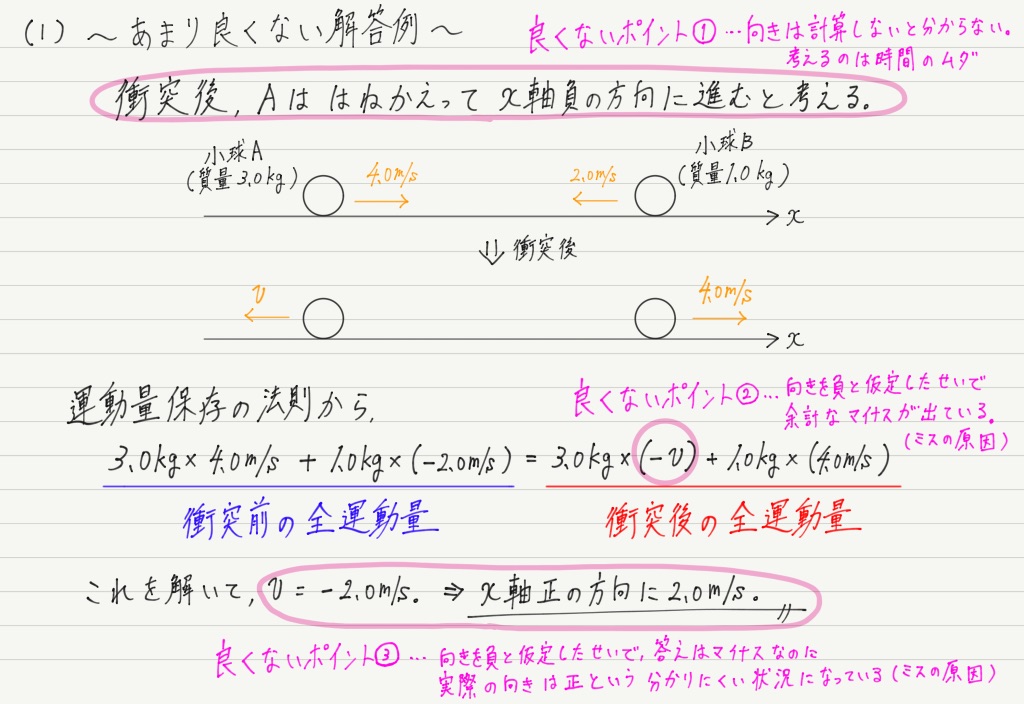 (1) ～あまり良くない解答例～
良くないポイント① …向きは計算しないと分からない。
考えるのは時間のムダ
衝突後, Aは はねかえって x軸負の方向に進むと考える。
小球A
(質量3.0kg)
4.0m/s
2.0m/s
小球B
(質量1.0kg)
x
⇓ 衝突後
v
4.0m/s
x
運動量保存の法則から,
良くないポイント② … 向きを負と仮定したせいで
余計なマイナスが出ている。
(ミスの原因)
3.0kg × 4.0m/s + 1.0kg × (-2.0m/s) = 3.0kg × (-v) + 1.0kg × (4.0m/s)
衝突前の全運動量
衝突後の全運動量
これを解いて, v = -2.0m/s. ⇒ x軸正の方向に2.0m/s.
良くないポイント③ … 向きを負と仮定したせいで, 答えはマイナスなのに
実際の向きは正という 分かりにくい状況になっている (ミスの原因)